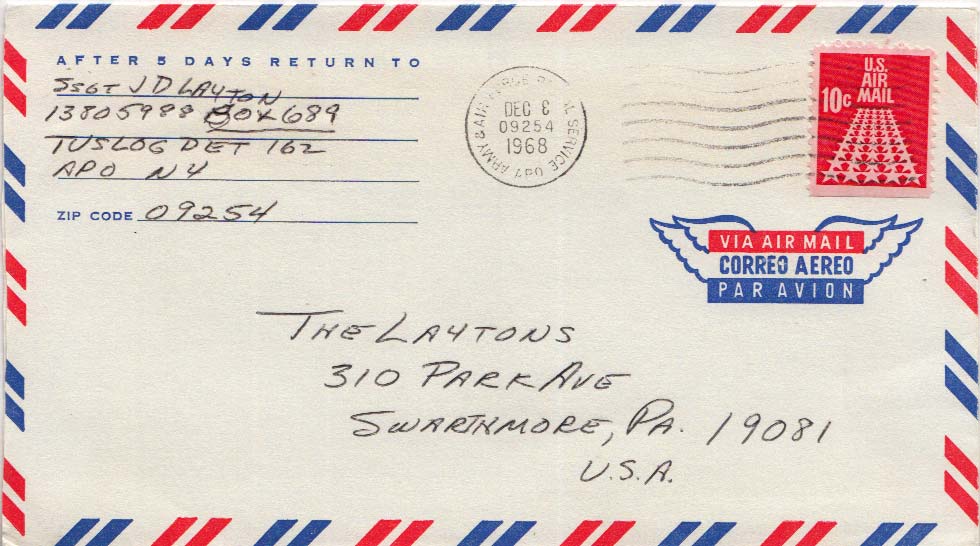 AFTER 5 DAYS RETURN TO
SSGT J D LAYTON
13805988 BOX 689
TUSLOG DET 162
APO NY
ZIP CODE 09254
ARMY & AIR FORCE POSTAL SERVICE
DEC 8
09254
1968
U.S.
AIR
MAIL
10c
VIA AIR MAIL
CORREO AEREO
PAR AVION
THE LAYTONS
310 PARK AVE
SWARTHMORE, PA. 19081
U.S.A.